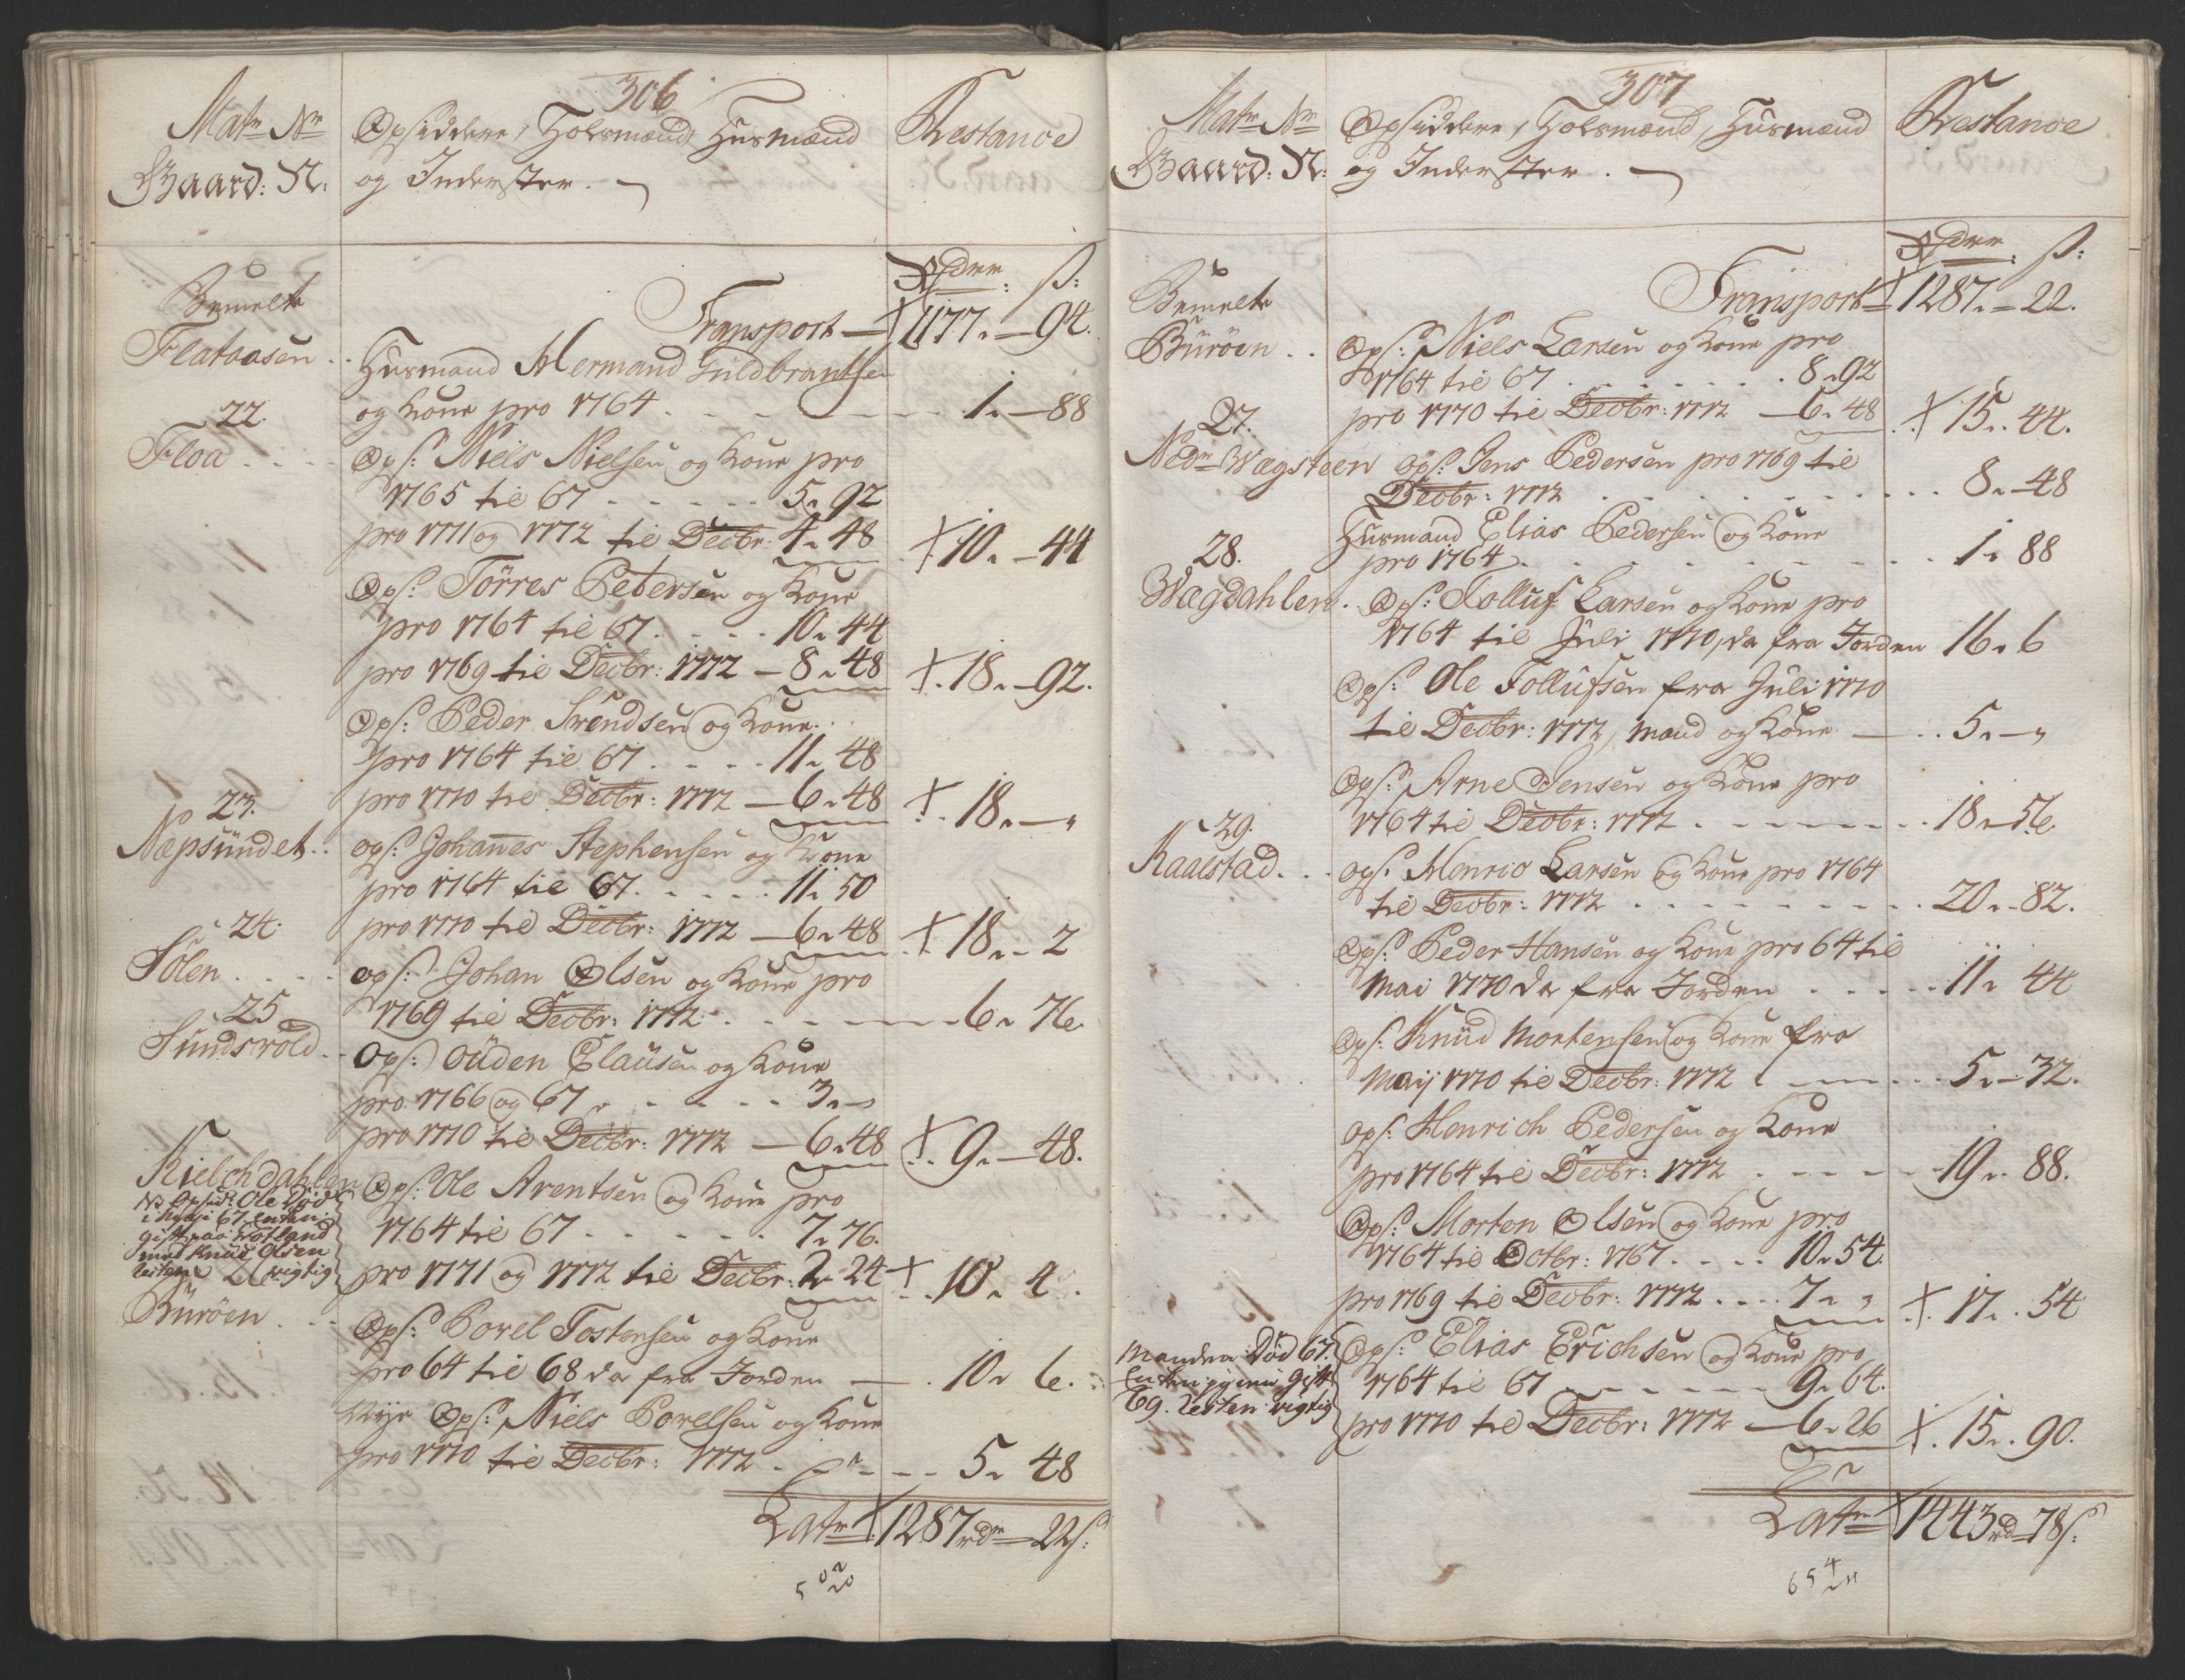 306
Matr Nr
Gaard: N:
Opsiddere, Holsmænd, Husmænd
og Inderster.
Restance
Rdlr: s:
Bemelte
Flataasen
Transport — 1177. — 94.
Husmand Hermand Guldbrantsen
og Kone pro 1764 . . . 1. — 88
22.
Floa . . .
Ops: Niels Nielsen og Kone pro
1765 til 67 . . . . . 5. 92
pro 1771 og 1772 til Decbr. 4. 48 X 10. — 44
Ops: Törres Petersen og Kone
pro 1764 til 67 . . . . 10. 44
pro 1769 til Decbr: 1772 — 8. 48 X. 18. — 92.
Ops: Peder Svendsen og Kone
pro 1764 til 67 . . . . 11. 48
pro 1770 til Decbr: 1772 — 6. 48 X. 18. — „
23.
Næpsundet . .
ops: Johannes Stephensen og Kone
pro 1764 til 67 . . . . 11. 50
pro 1770 til Decbr: 1772 — 6. 48 X. 18. - 2
24.
Sölen . . .
ops: Johan Olsen og Kone pro
1769 til Decbr: 1772 . . . 6. 76.
25
Sundsvold . .
Ops: Ouden Clausen og Kone
pro 1766 og 67 . . . . . 3. — „
pro 1770 til Decbr: 1772 — 6. 48 X. 9. — 48.
Kielchdahlen
NB Opsid: Ole Död
i 67 Enken
gift paa
med Knud Olsen
Resten rigtig
Ops: Ole Arentsen og Kone pro
1764 til 67 . . . . . 7. 76.
pro 1771 og 1772 til Decbr: 2. 24 X . . 10. 4.
Buröen . . .
Ops: Povel Tostensen og Kone
pro 64 til 68 da fra Jorden — . 10. 6.
Nye Ops: Niels Povelsen og Kone
pro 1770 til Decbr: 1772 . . . 5. 48
Latr X 1287 rdr — 22 s:
307
Matr Nr
Gaard: N:
Opsiddere, Holsmænd, Husmænd
og Inderster.
Restance
Rdlr: s:
Bemelte
Buröen . .
Transport X 1287. — 22.
Ops: Niels Larsen og Kone pro
1764 til 67 . . . . . . 8. 92
pro 1770 til Decbr: 1772 — 6. 48 X 15. . 44.
27.
Nedr Wægsteen
Ops: Jens Pedersen pro 1769 til
Decbr: 1772 . . . . . . 8. — 48
Husmand Elias Pedersen og Kone
pro 1764 . . . . . . . 1. 88
28.
Wægdahlen .
Ops: Tolluf Larsen og Kone pro
1764 til Juli 1770, da fra Jorden 16. 6
Ops: Ole Tollufsen fra Juli 1770
til Decbr: 1772, Mand og Kone — . . 5. — „
Ops: Arne Jensen og Kone pro
1764 til Decbr: 1772 . . . . 18. 56.
29.
Kaalstad . . .
ops: Henric Larsen og Kone pro 1764
til Decbr: 1772 . . . . . . 20. . 82.
Ops: Peder Hansen og Kone pro 64 til
Mai 1770 da fra Jorden . . . . 11. 44
Ops: Knud Mortensen og Kone fra
Maij 1770 til Decbr: 1772 . . . 5. — 32.
ops: Henrich Pedersen og Kone
pro 1764 til Decbr: 1772 . . . . 19. . 88.
Ops: Morten Olsen og Kone pro
1764 til Octbr: 1767 . . . . 10. 54.
pro 1769 til Decbr: 1772 . . . 7. „ X. 17. . 54
Manden Död 67.
Enken gift
69. Resten rigtig
Ops: Elias Erichsen og Kone pro
1764 til 67 . . . . . 9. 64.
pro 1770 til Decbr: 1772 — 6. 26 X. 15. . 90.
Latr X 1443 rd — 78 s: